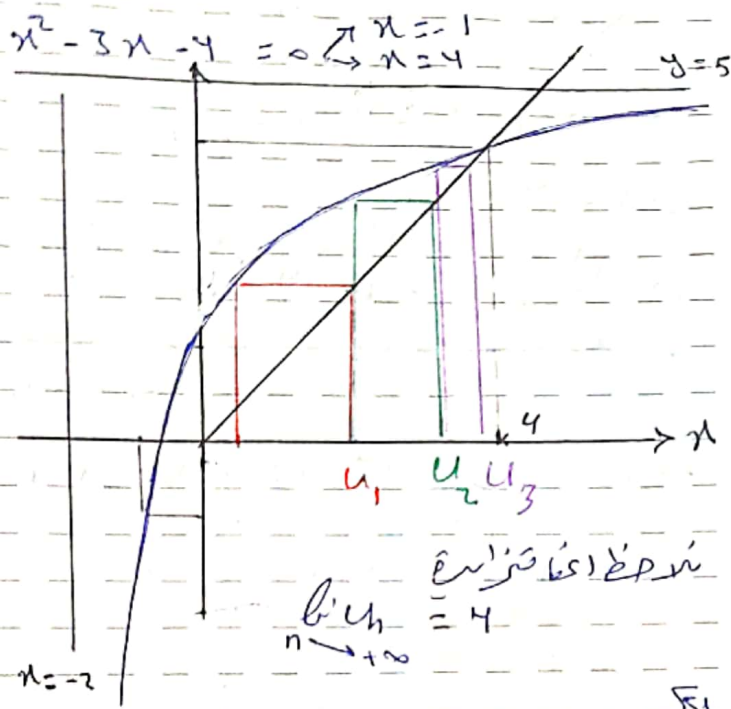 x² - 3x - 4 = 0 ↗ x = -1
↘ x = 4
y = 5
4
x
u₁ u₂ u₃
نلاحظ انها متزايدة
lim uₙ = 4
n → +∞
x = -2